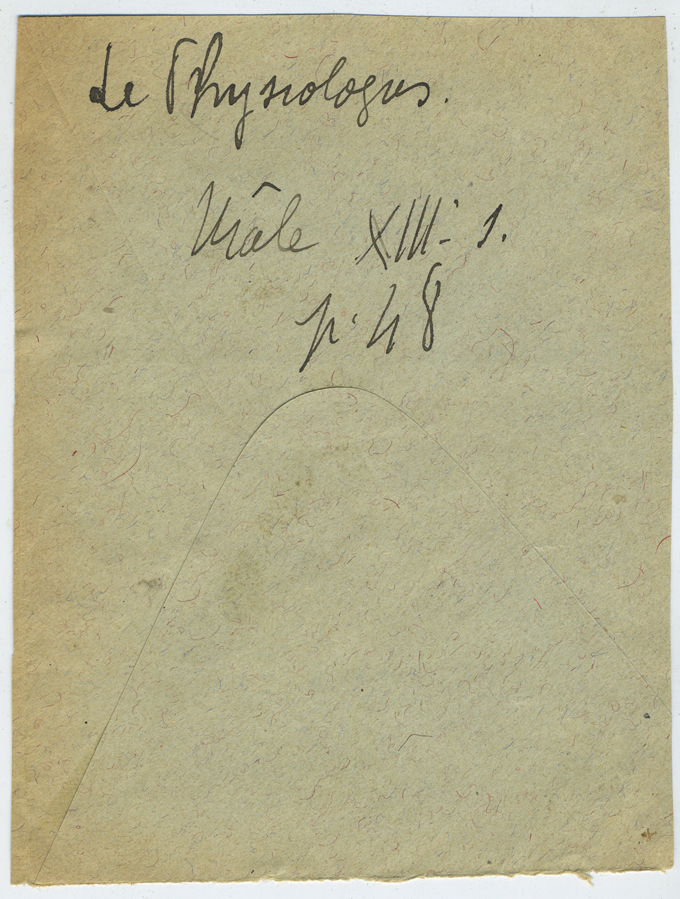 Le Physiologus.
Mâle XIIIe s.
p. 48